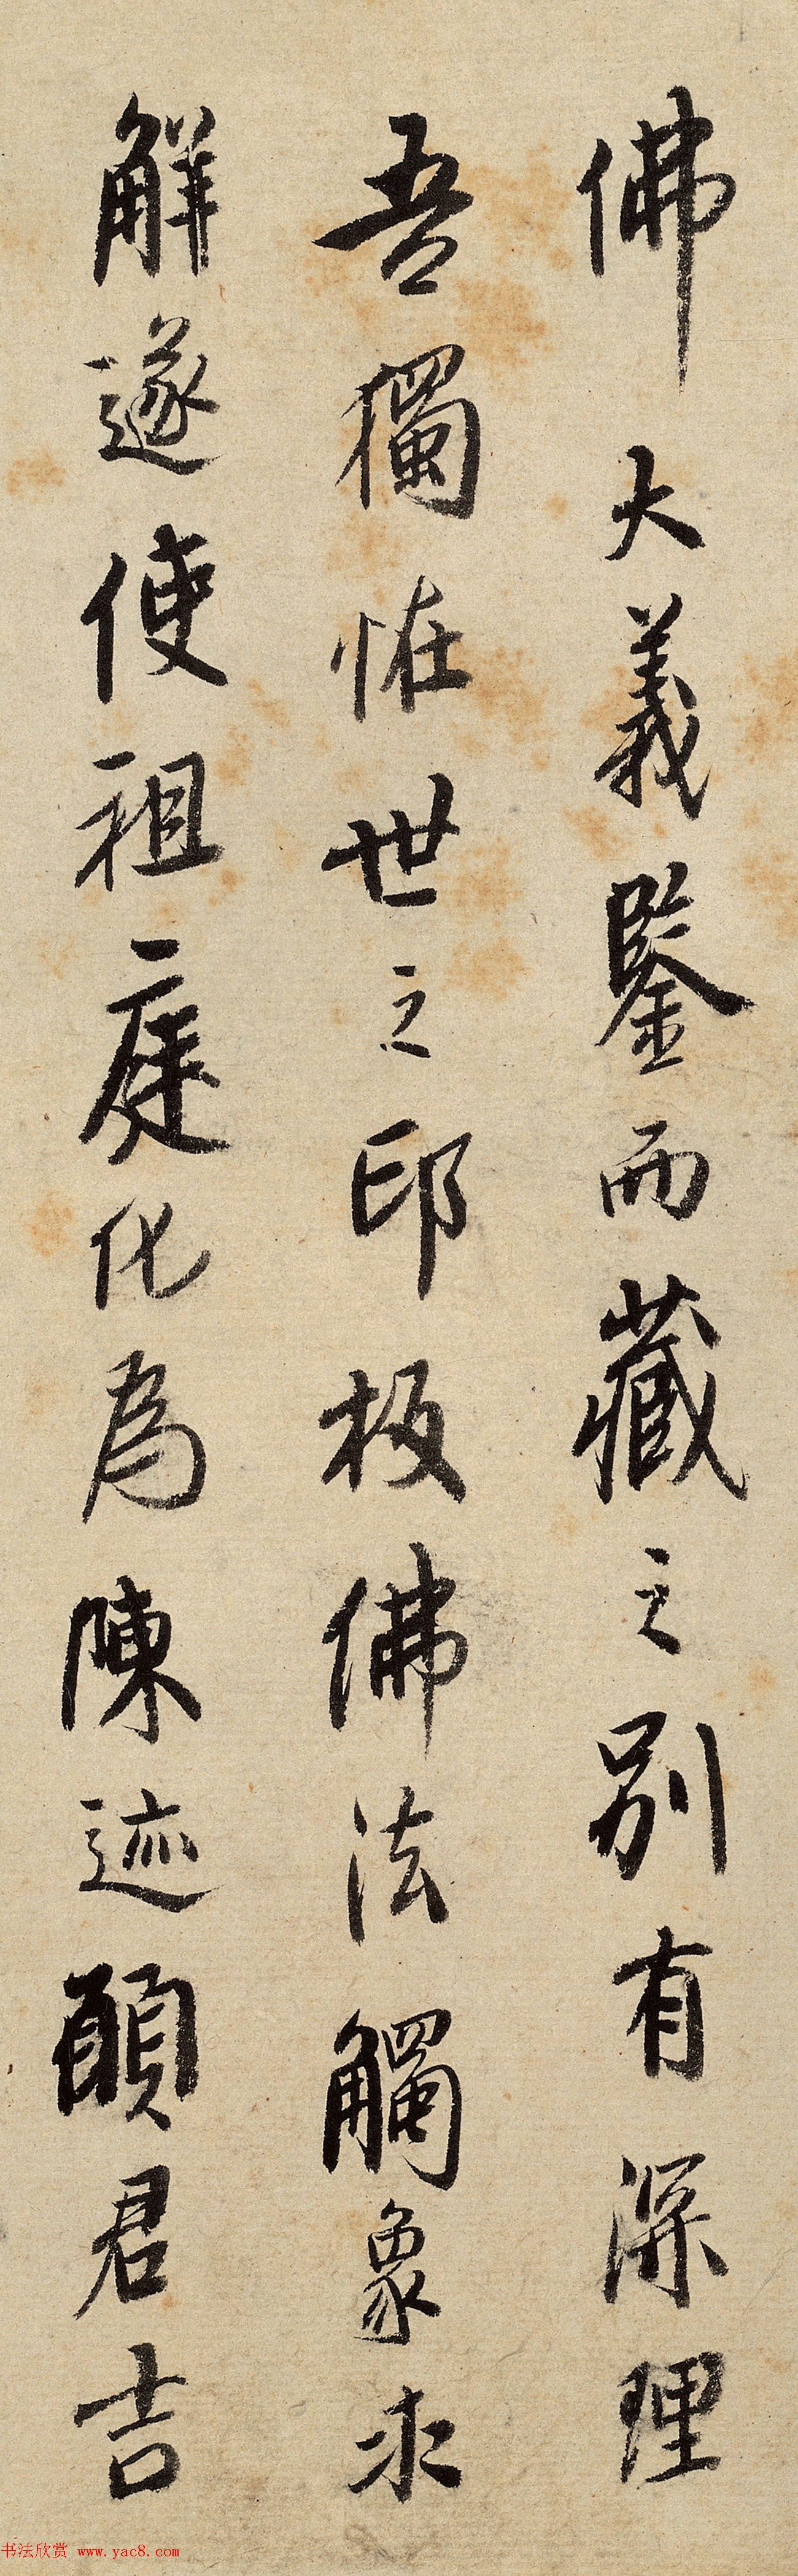 佛大義鑒而藏之別有深理
吾獨怪世之印板佛法觸象求
解遂使祖庭化為陳迹願君吉
书法欣赏 www.yac8.com